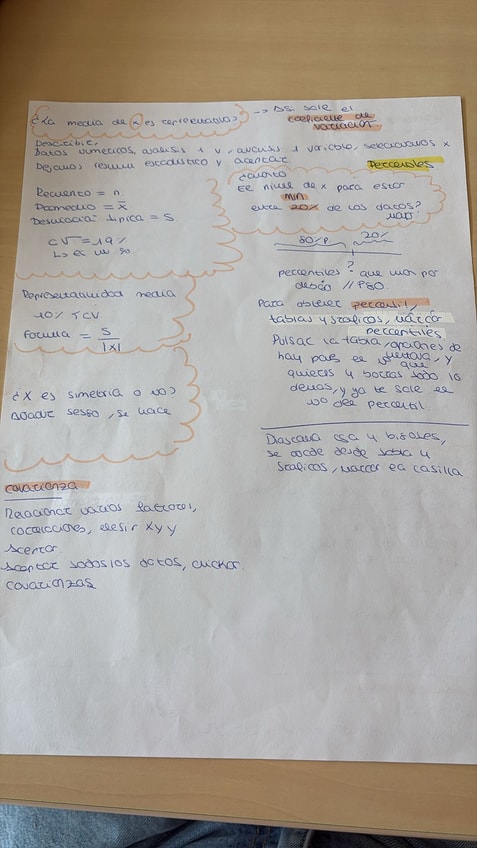 ¿La media de x es representativa? → Dsi sale el
coeficiente de
variación
Describir,
Datos numericos, analisis 1 v, analisis 1 variable, seleccionamos x
Dejamos resumen estadistico y aceptar
Recuento = n
Promedio = x̄
Desviacion tipica = S
CV = 19%
Representatividad media
10% < CV
Formula = S / |x̄|
¿X es simetria o no?
sesgo, se hace
Percentiles
¿cuanto
Es nivel de x para estar
min
entre 20% de los datos?
80% P 20%
?
percentiles que van por
debajo // P80.
Para obtener percentil,
tablas y graficos, marcar
percentiles
Pulsar la tabla, opciones de
ventana, y
que
quieras y borras todo lo
demas, y ya te sale el
no del percentil.
Diagrama caja y bigotes,
se accede desde tabla y
graficos, marcar la casilla
covarianza
Relacionar varios factores,
correlaciones, elegir X y y
aceptar
Aceptar todos los datos, clickar
covarianzas